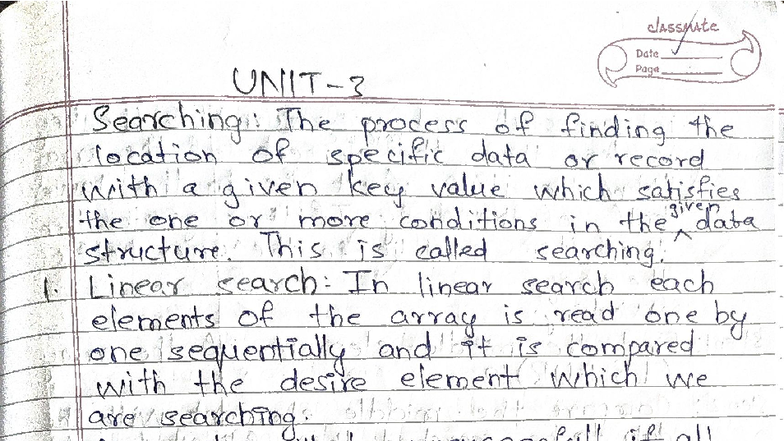 classmate
Date
Page
UNIT-3
Searching: The process of finding the
location of specific data or record
with a given key value which satisfies
the one or more conditions in the given data
structure. This is called searching.
1. Linear search:- In linear search each
elements of the array is read one by
one sequentially and it is compared
with the desire element which we
are searching.
if all